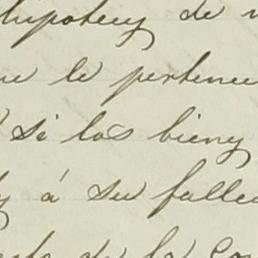 hipotecy de
le pertenec
si los bieny
á su falle
de la Con